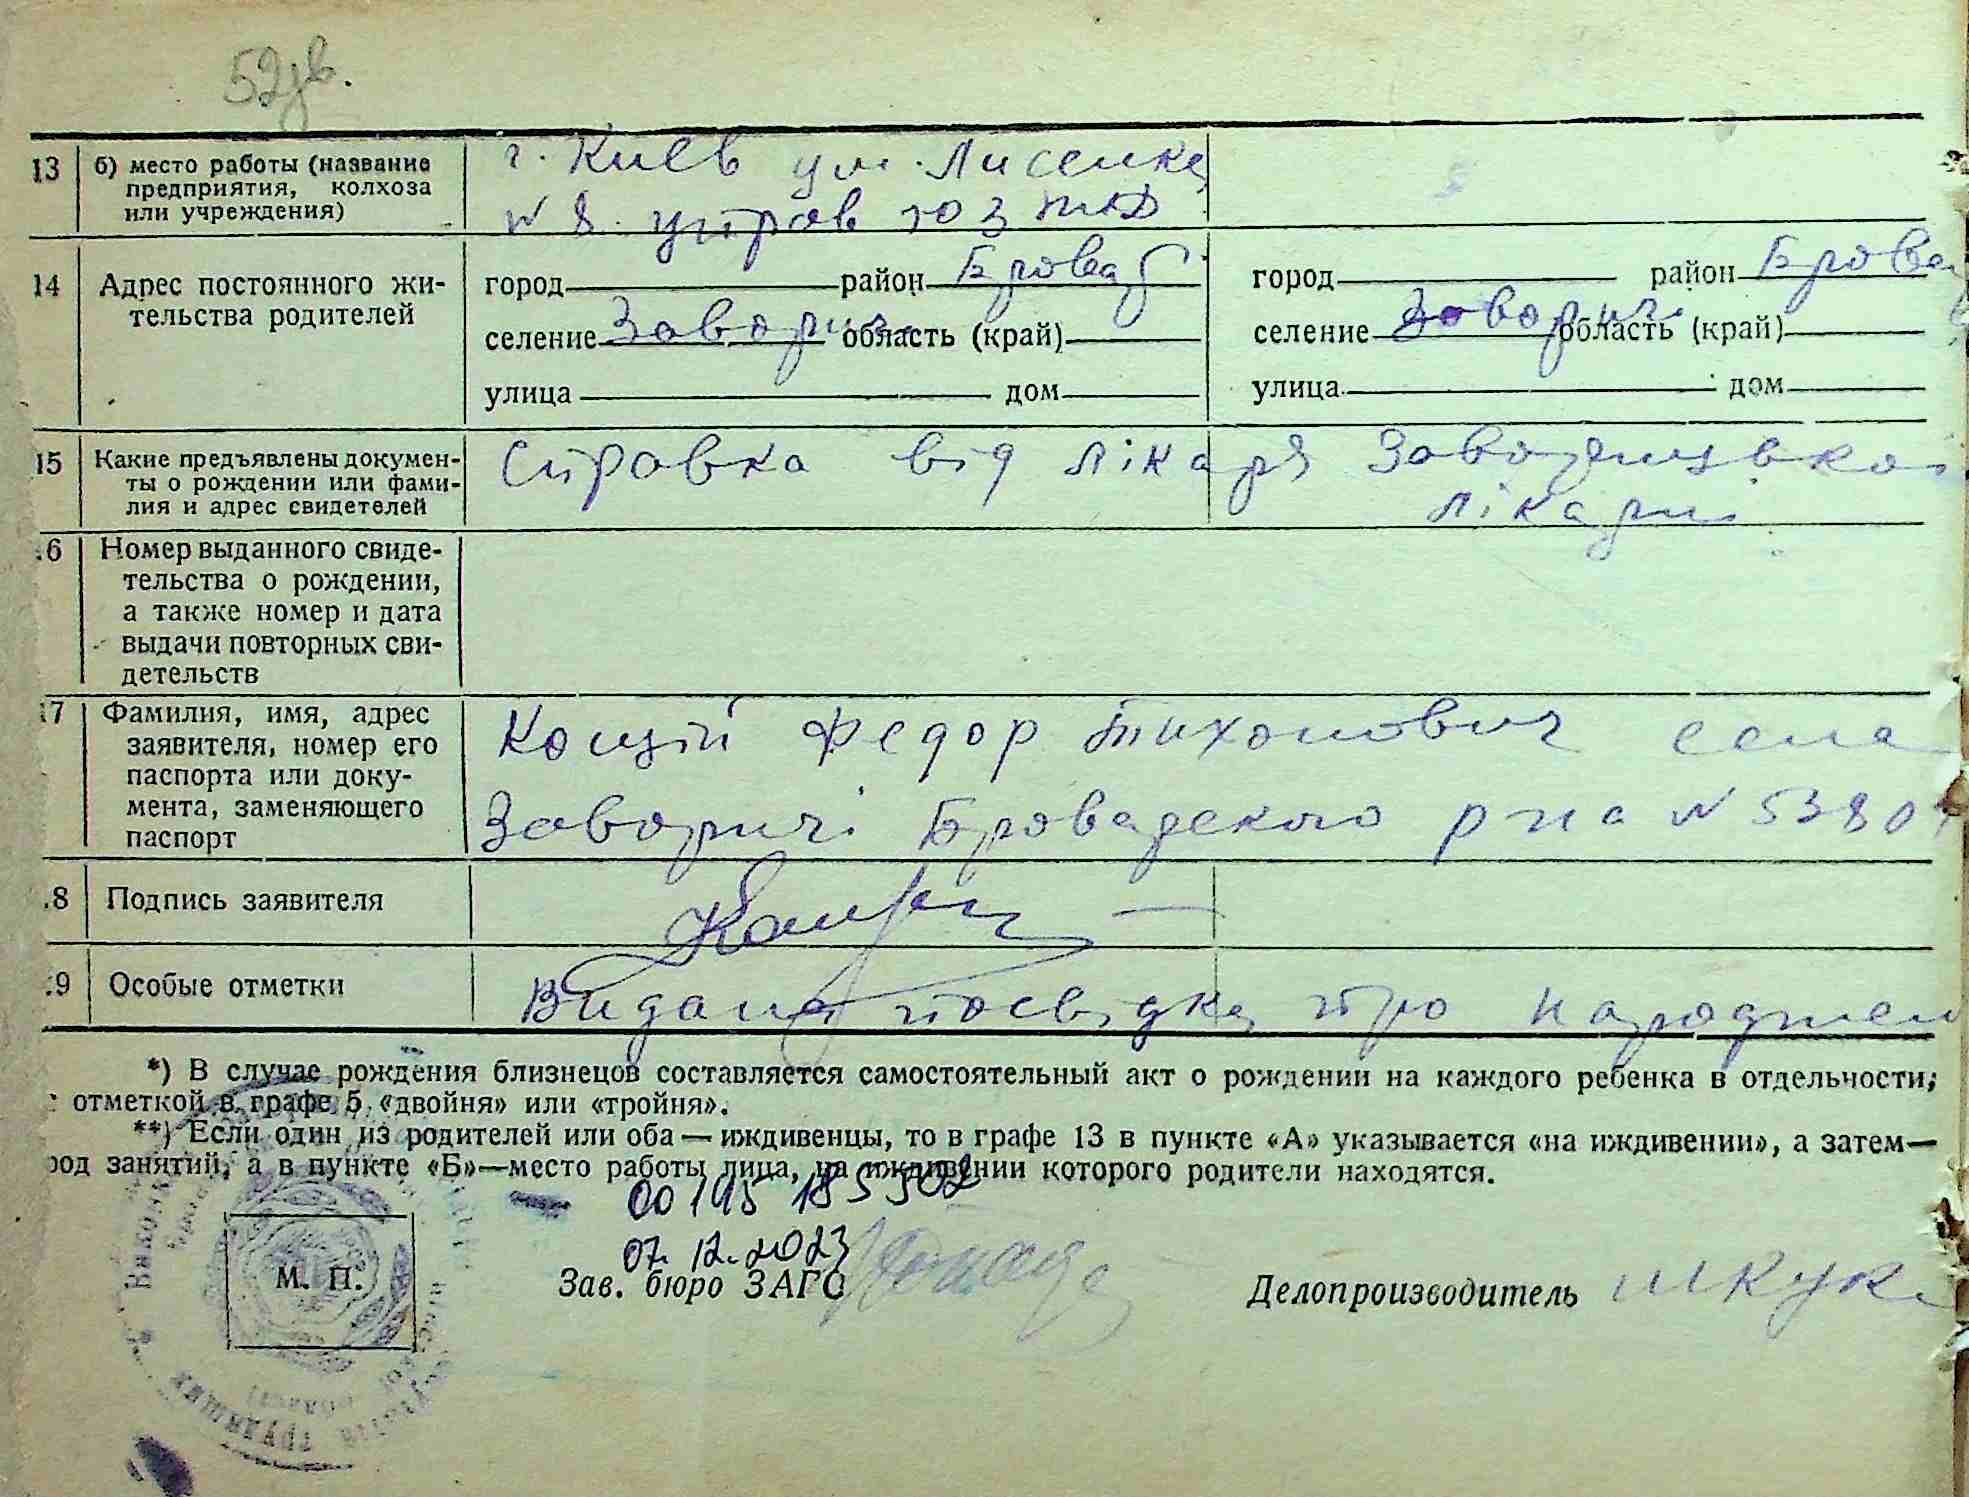 52зв.
13 б) место работы (название предприятия, колхоза или учреждения)
г. Киев ул. Лисенка
N 8. управ юз жд
14 Адрес постоянного жи-
тельства родителей
город район Бровар город район Бровар
селение Заворичі область (край) селение Заворичі область (край)
улица дом улица дом
15 Какие предъявлены докумен-
ты о рождении или фами-
лия и адрес свидетелей
Справка від лікаря Заворицької
лікарні
16 Номер выданного свиде-
тельства о рождении,
а также номер и дата
выдачи повторных сви-
детельств
17 Фамилия, имя, адрес
заявителя, номер его
паспорта или доку-
мента, заменяющего
паспорт
Кощій Федор Тихонович села
Заворичі Броварского рна N 5380
.8 Подпись заявителя
.9 Особые отметки
Видана посвідка про народжен
*) В случае рождения близнецов составляется самостоятельный акт о рождении на каждого ребенка в отдельности;
с отметкой в графе 5 «двойня» или «тройня».
**) Если один из родителей или оба — иждивенцы, то в графе 13 в пункте «А» указывается «на иждивении», а затем—
род занятий, а в пункте «Б»—место работы лица, на иждивении которого родители находятся.
00145 185 502
07.12.2023
М. П. Зав. бюро ЗАГС Делопроизводитель Шкук
трудящих